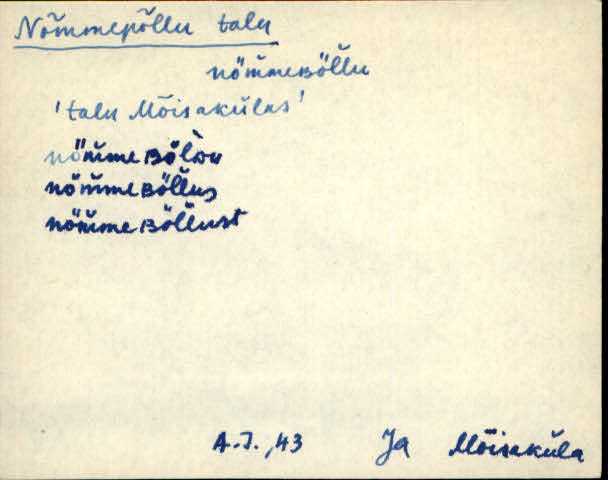 Nõmmepõllu talu
nõm̆meBõl̆lu
'talu Mõisakülas'
nõm̆meBõl̀lu
nõm̆meBõl̆lus
nõm̆meBõl̆lust
A.J.,43 Jä Mõisaküla